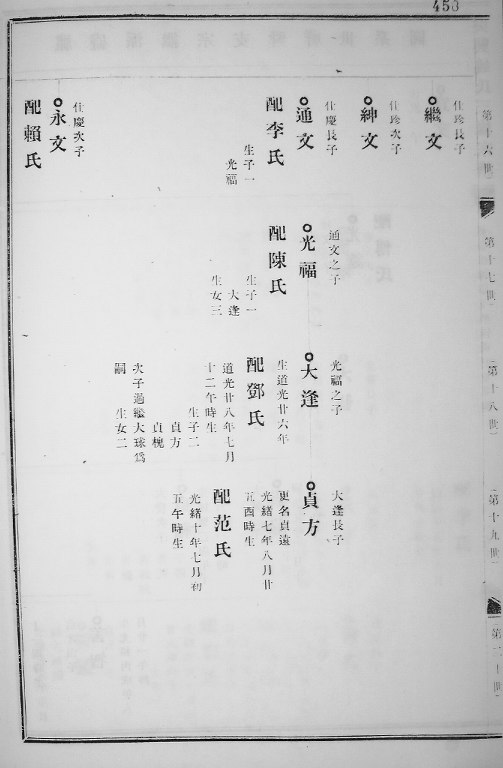 453
第十六世
第十七世
第十八世
第十九世
第二十世
仕珍長子
繼文
仕珍次子
紳文
仕慶長子
通文
配李氏
生子一
光福
仕慶次子
永文
配賴氏
通文之子
光福
配陳氏
生子一
大逢
生女三
光福之子
大逢
生道光廿六年
配鄧氏
道光廿八年七月
十二午時生
生子二
貞方
貞槐
次子過繼大球爲
嗣 生女二
大逢長子
貞方
更名貞遠
光緒七年八月廿
五酉時生
配范氏
光緒十年七月初
五午時生